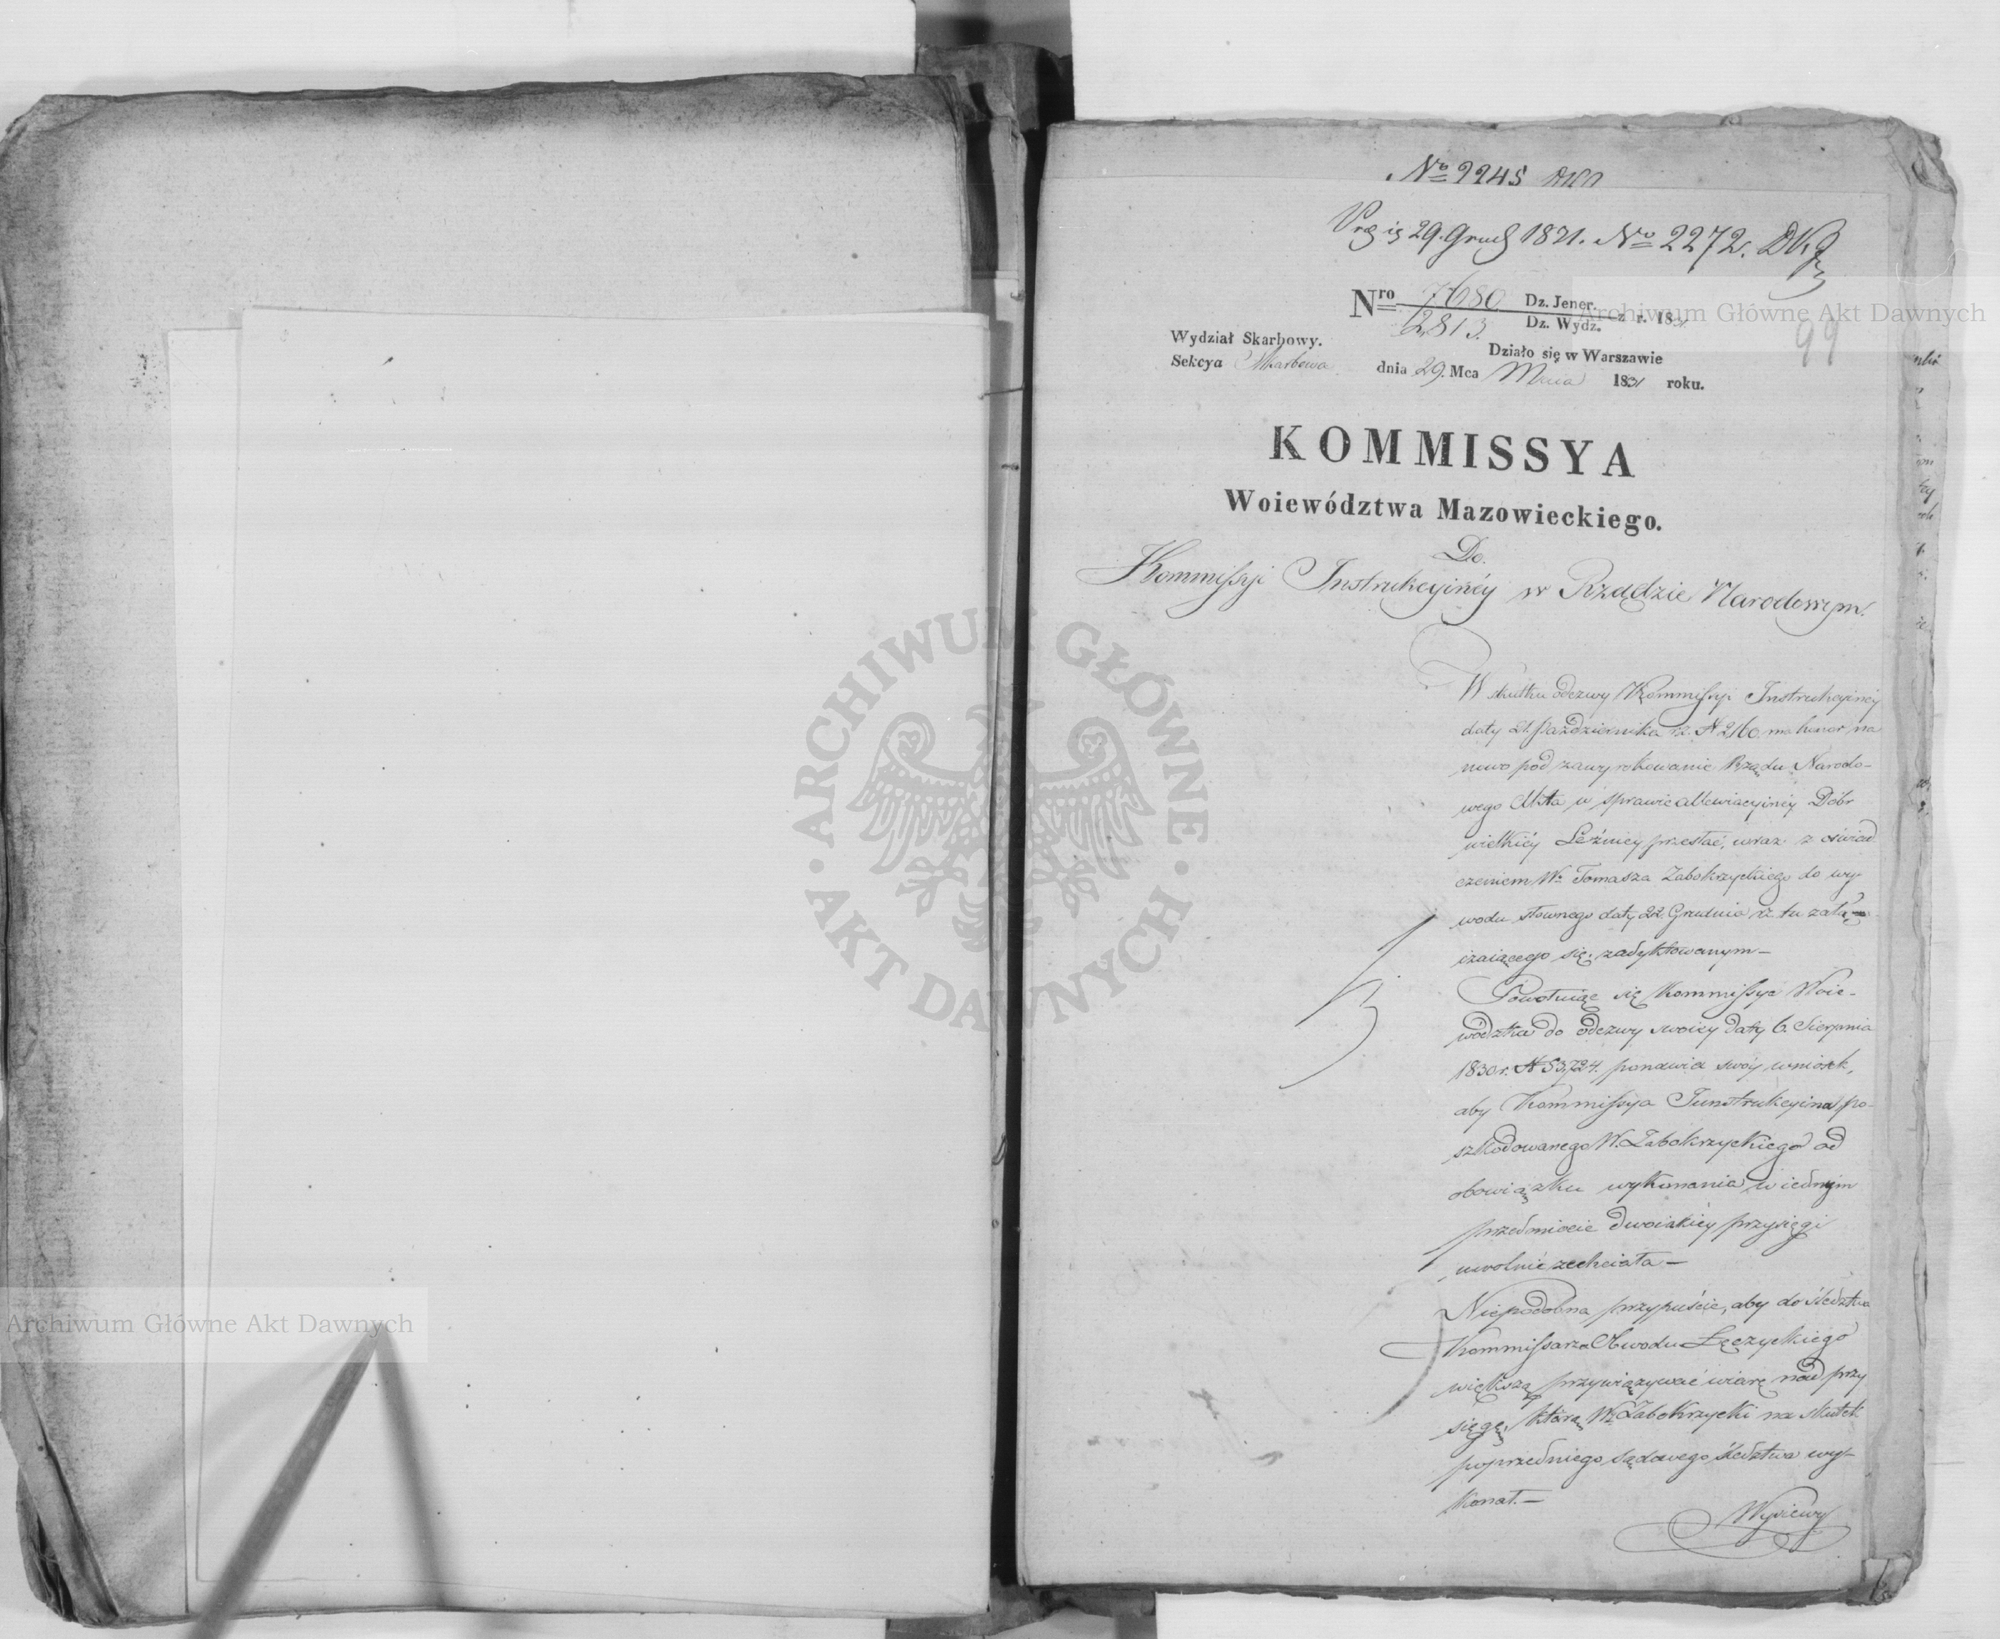 Nro 2245
29. Grud 1831. Nro 2272.
Nro 7680 Dz. Jener.
12813. Dz. Wydz. z r. 1831
99
Wydział Skarbowy.
Sekcya Skarbowa
Działo się w Warszawie
dnia 29. Mca 1831 roku.
KOMMISSYA
Woiewództwa Mazowieckiego.
Do.
Kommissyi Instrukcyinéy w Rządzie Narodowym.
W skutku odezwy Kommissyi Instrukcyinéy
daty 21. Października r.z. N 2160. ma honor na
nowo pod zawyrokowanie Rządu Narodo-
wego Akta w sprawie allewiacyinéy Dóbr
wielkiéy Leźnicy przesłać, wraz z oświad
czeniem W. Tomasza Zabokrzyckiego do wy-
wodu słownego daty 22 Grudnia r.z. tu załą-
czaiącego się, zadyktowanym —
Powołuiąc się Kommissya Woie-
wództwa do odezwy swoiey daty 6. Sierpnia
1830 r. N 53,724. ponawia swóy wniosek,
aby Kommissya Instrukcyina po-
szkodowanego W. Zabokrzyckiego od
obowiązku wykonania w iednym
przedmiocie dwoiakiéy przysięgi
uwolnić zechciała —
Niepodobna przypuście, aby do śledztwa
Kommissarza Obwodu Łęczyckiego
większą przywiązywać wiarę nad przy
sięgę, którą W. Zabokrzycki na skutek
poprzedniego sądowego śledztwa wy-
konał. —
Archiwum Główne Akt Dawnych
Archiwum Główne Akt Dawnych
ARCHIWUM GŁÓWNE AKT DAWNYCH